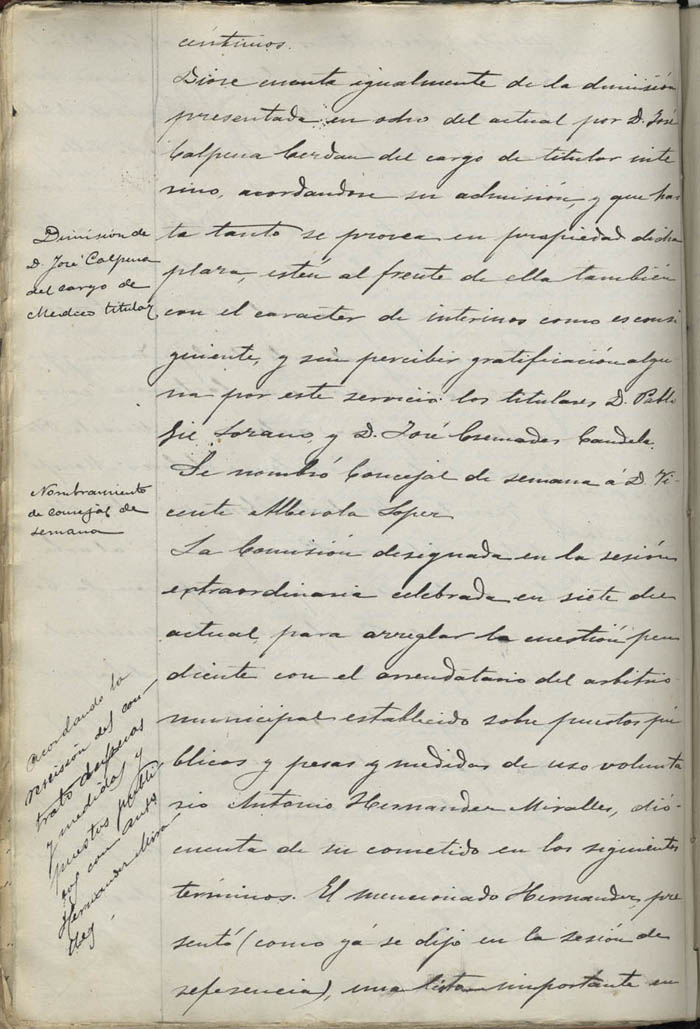 céntimos.
Diose cuenta igualmente de la dimisión
presentada en ocho del actual por D. José
Calpena Cerdan del cargo de titular inte
rino, acordandose su admisión, y que has
Dimisión de
D. José Calpena
del cargo de
Medico titular
ta tanto se provea en propiedad dicha
plaza, estén al frente de ella también
con el caracter de interinos como es consi
guiente, y sin percibir gratificación algu
na por este servicio los titulares D. Pablo
Gil Sorano, y D. José Cremades Candela.
Nombramiento
de concejal de
semana
Se nombró Concejal de semana á D. Vi
cente Alberola Soper
La Comisión designada en la sesión
extraordinaria celebrada en siete del
actual, para arreglar la cuestión pen
acordando la
rescisión del con-
trato de pesas
y medidas y
puestos publi
cos con Anto
Hernandez Mira-
lles
diente con el arrendatario del arbitrio
municipal establecido sobre puestos pú
blicos y pesas y medidas de uso volunta
rio Antonio Hernandez Miralles, dió
cuenta de su cometido en los siguientes
términos. El mencionado Hernandez, pre
sentó (como yá se dijo en la sesión de
referencia), una lista importante en